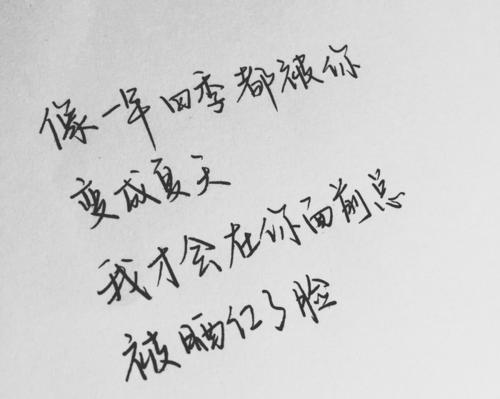 像一年四季都被你
变成夏天
我才会在你面前总
被晒红了脸